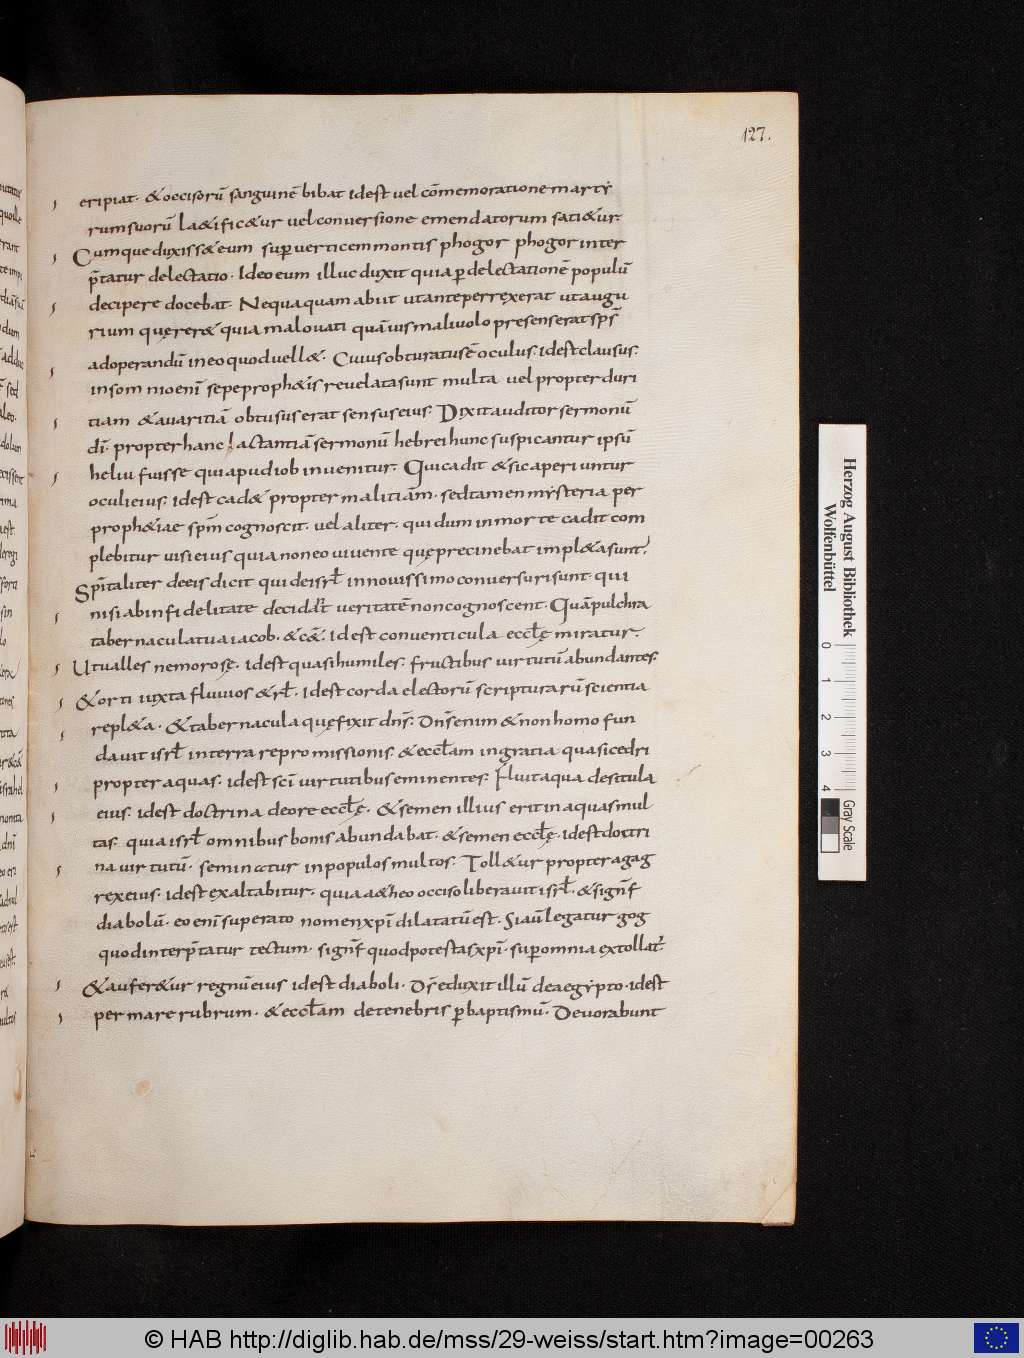 127.
eripiat· & occisorū sanguinē bibat id est vel cōmemoratione marty
rum suorū l&ific&ur vel conversione emendatorum sati&ur·
Cumque duxiss& eum sup verticem montis phogor phogor inter
pr̄tatur delectatio· Ideo eum illuc duxit quia p delectationē populū
decipere docebat· Nequaquam abiit ut ante perrexerat ut augu
rium quęrer& quia malo vati quāvis malivolo presenserat sp̄s
ad operandū in eo quod vell&· Cuius obturatus ē oculus· id est clausus·
in somnio enī sepe proph&is revelata sunt multa vel propter duri
tiam & avaritiā obtusus erat sensus eius· Dixit auditor sermonū
dī· propter hanc lactantiā sermonū hebrei hunc suspicantur ipsū
heliu fuisse qui apud iob invenitur· Qui cadit & sic aperiuntur
oculi eius· id est cad& propter malitiām· sed tamen mysteria per
proph&iae sp̄m cognoscit· vel aliter· qui dum in morte cadit com
plebitur visi eius quia non eo vivente quę precinebat impl&a sunt·
Sp̄italiter de eis dicit qui de isrł in novissimo conversuri sunt· qui
nisi ab infidelitate decidār̄ veritatē non cognoscent· Quā pulchra
tabernacula tua iacob· & c&̄· Id est conventicula eccłę miratur·
Ut valles nemorosę· id est quasi humiles· fructibus virtutū abundantes·
& orti iuxta fluvios & rł· Id est corda electorū scripturarū scientia
repl&a· & tabernacula quę fixit dn̄s· Dn̄s enim & non homo fun
davit isrł in terra repromissionis· & eccłam in gratia quasi cedri
propter aquas· id est scī virtutibus eminentes· Fluit aqua de situla
eius· id est doctrina de ore eccłę· & semen illius erit in aquas mul
tas· quia isrł omnibus bonis abundabat· & semen eccłę· id est doctri
na virtutū· seminatur in populos multos· Toll&ur propter agag
rex eius· id est exaltabitur· quia a&heo occiso liberavit isrł· & signīf
diabolū· eo enī superato nomen xp̄i dilatatū est· Si aū legatur gog
quod interpr̄tatur tectum· signīf quod potestas xp̄i· sup omnia extollat̄·
& aufer&ur regnū eius id est diaboli· Dś eduxit illū de aegypto· id est
per mare rubrum· & eccłam de tenebris p baptismū· Devorabunt
Herzog August Bibliothek
Wolfenbüttel
0 1 2 3 4
Gray Scale
© HAB http://diglib.hab.de/mss/29-weiss/start.htm?image=00263